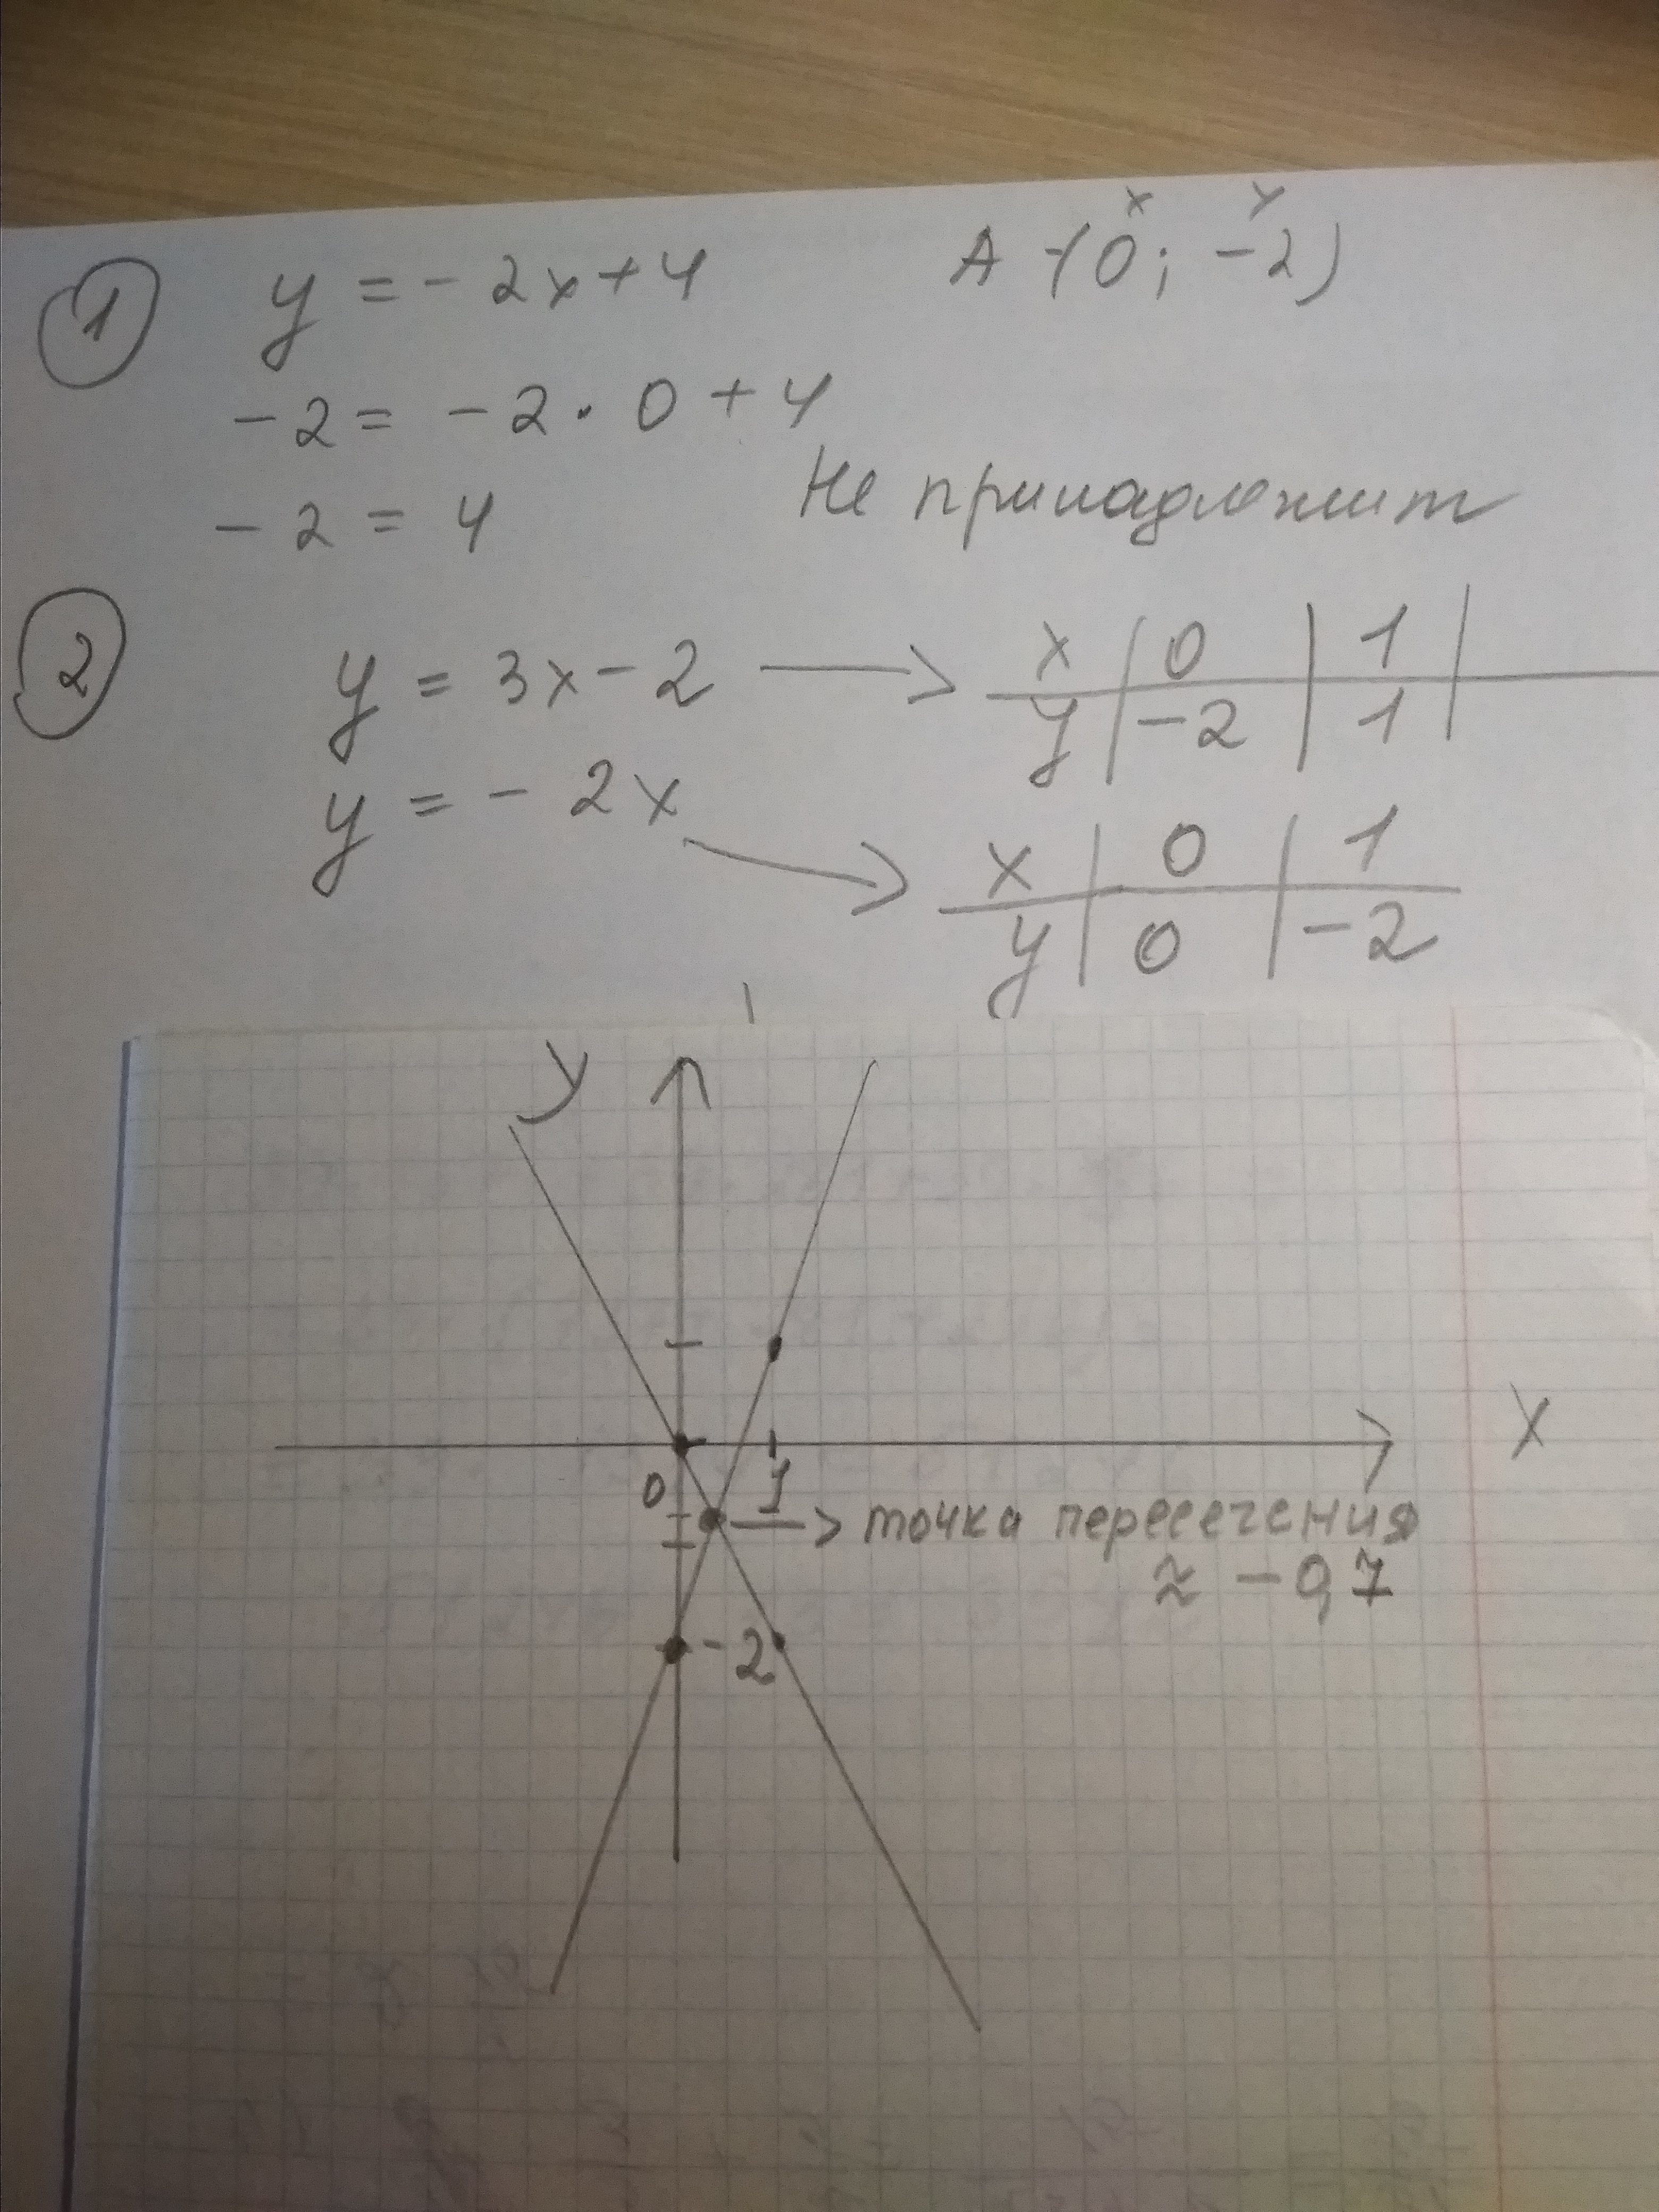 1 y = -2x+4 A -(0; -2)
x y
-2 = -2 · 0 + 4
-2 = 4 Не принадлежит
2 y = 3x-2 → x | 0 | 1
y | -2 | 1
y = -2x → x | 0 | 1
y | 0 | -2
y
x
0 1
→ точка пересечения
≈ -0,7
-2